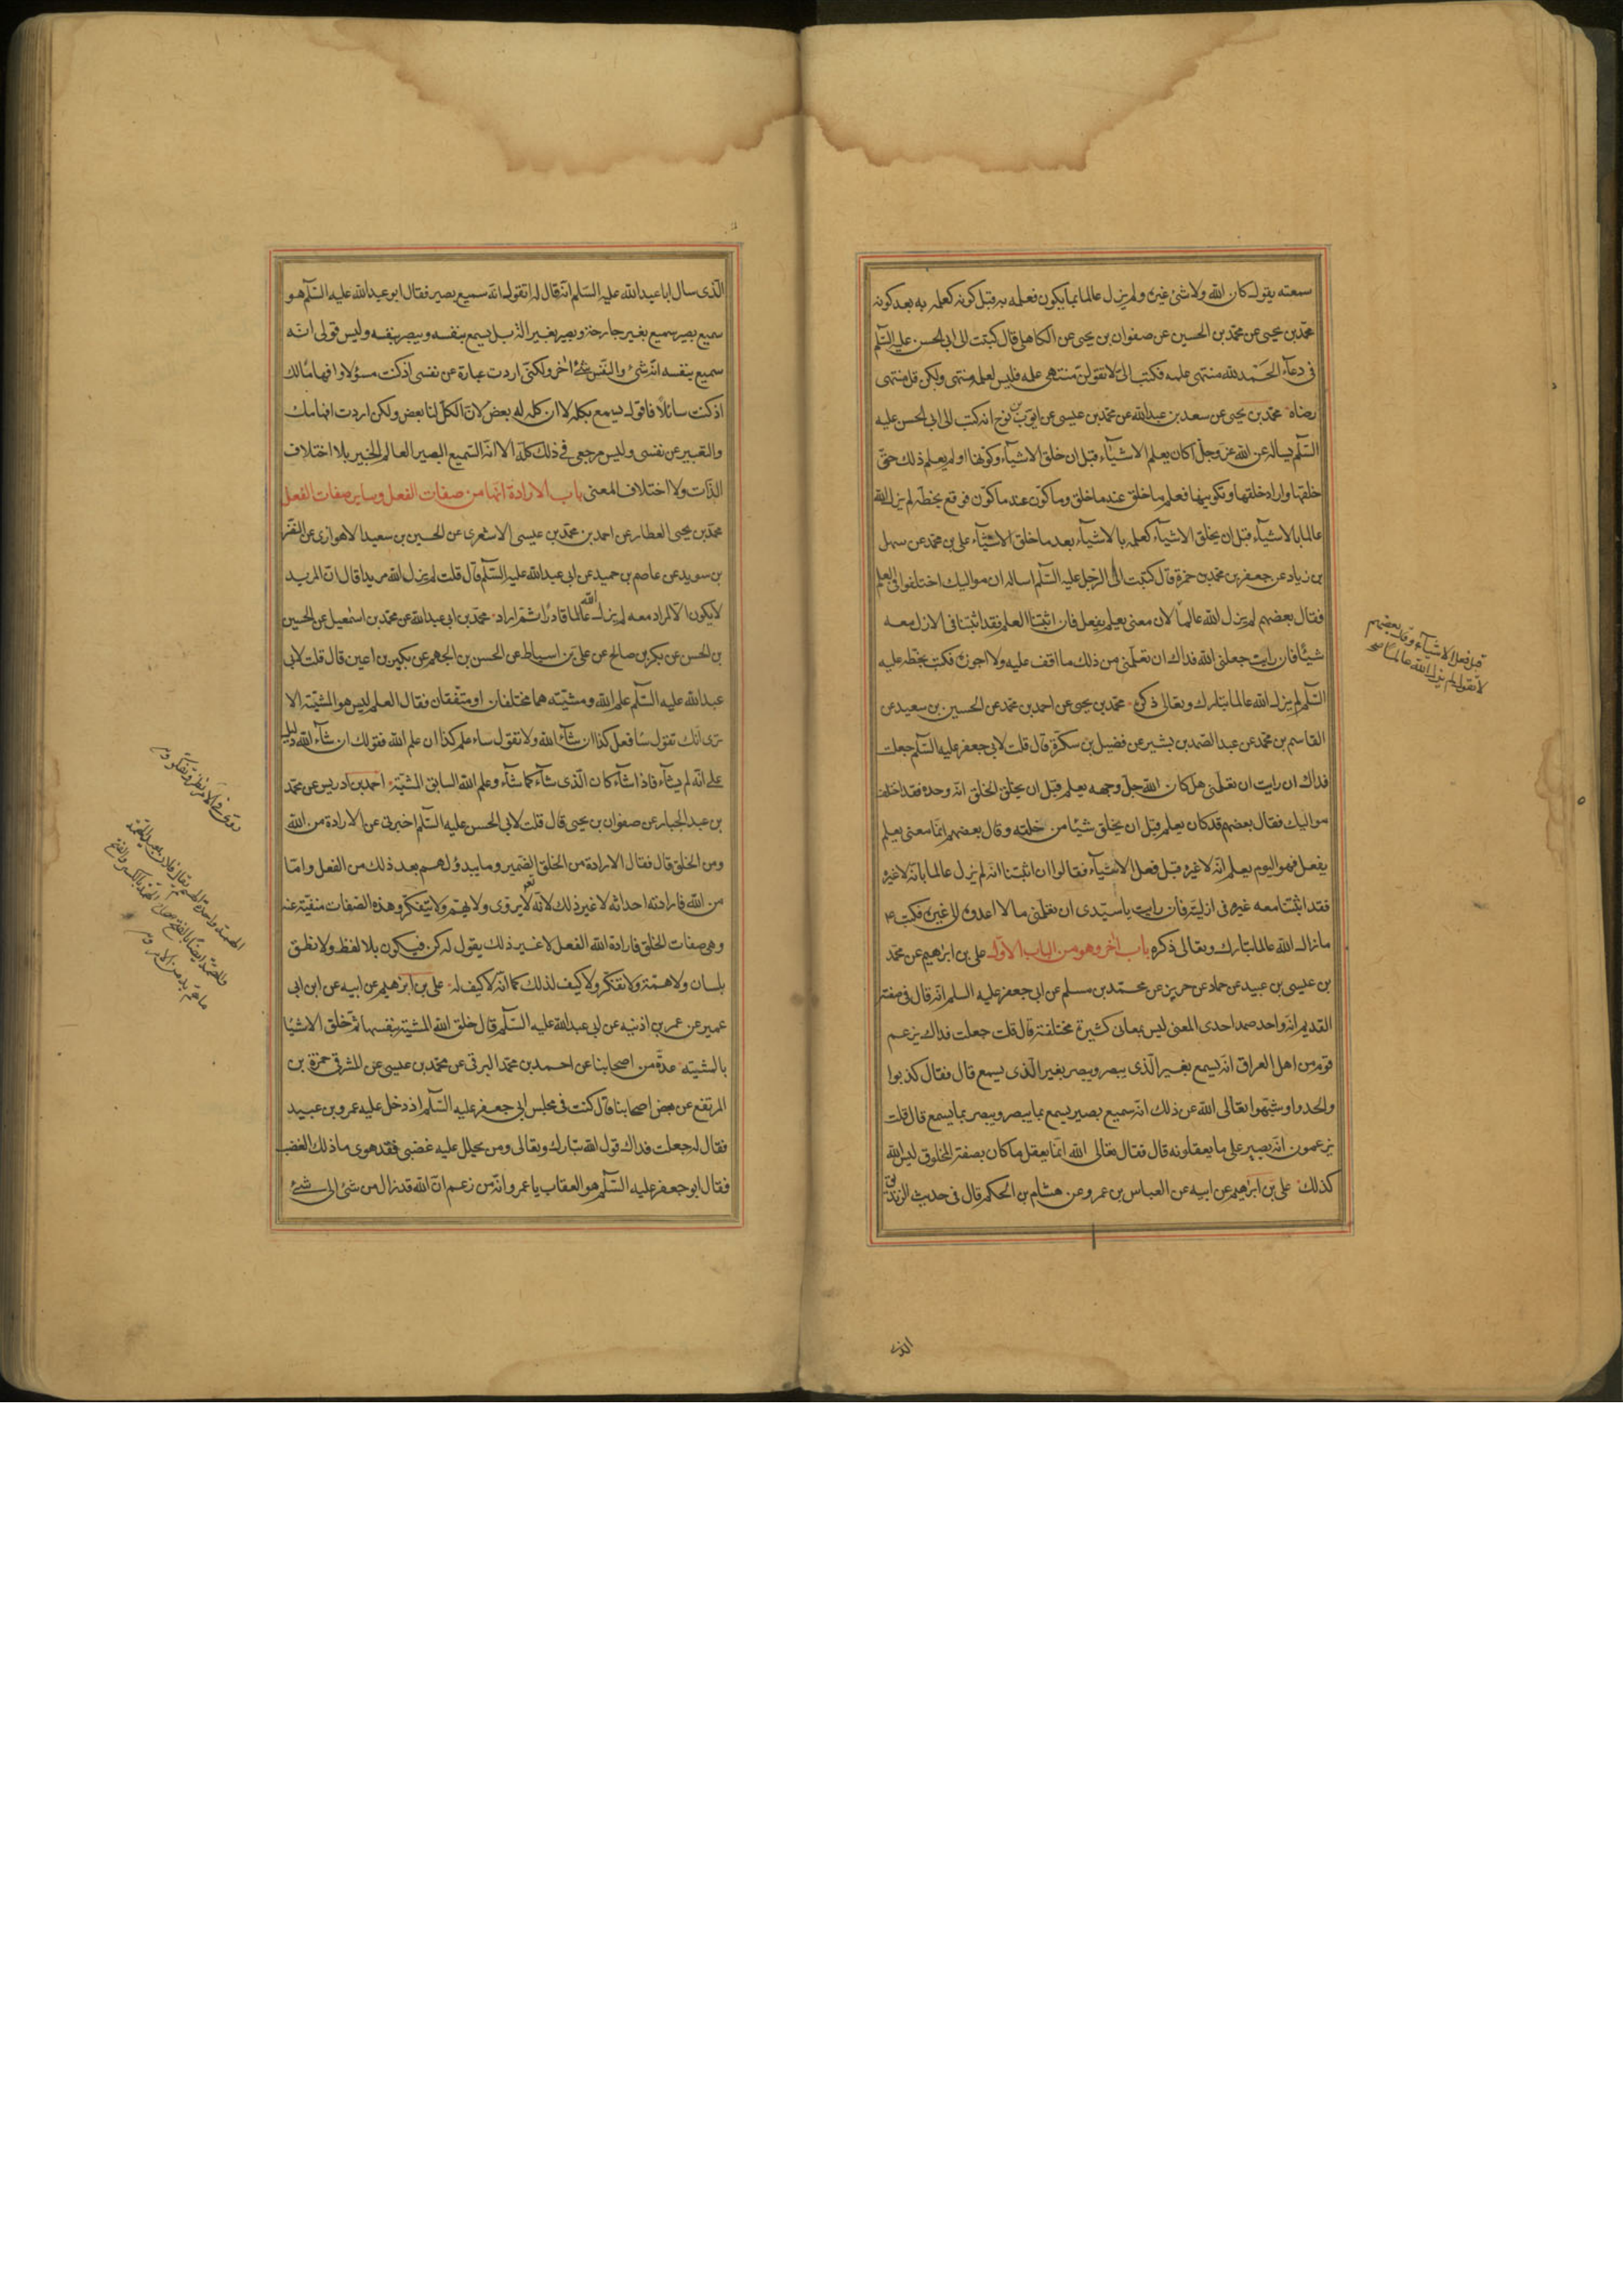 سمعته يقول كان الله ولا شئ غيره ولم يزل عالما بما يكون فعلمه به قبل كونه كعلمه به بعد كونه
محمد بن يحيى عن محمد بن الحسين عن صفوان بن يحيى عن الكاهلى قال كتبت الى ابى الحسن عليه السلم
فى دعاء الحمد لله منتهى علمه فكتب الىّ لا تقولن منتهى علمه فليس لعلمه منتهى ولكن قل منتهى
رضاه محمد بن يحيى عن سعد بن عبد الله عن محمد بن عيسى عن ايوب بن نوح انه كتب الى ابى الحسن عليه
السلم يساله عن الله عز وجل اكان يعلم الاشياء قبل ان خلق الاشياء وكونها او لم يعلم ذلك حتى
خلقها واراد خلقها وتكوينها فعلم ما خلق عند ما خلق وما كون عند ما كون فوقع بخطه لم يزل الله
عالما بالاشياء قبل ان يخلق الاشياء كعلمه بالاشياء بعد ما خلق الاشياء على بن محمد عن سهل
بن زياد عن جعفر بن محمد بن حمزة قال كتبت الى الرجل عليه السلم اساله ان مواليك اختلفوا فى العلم
فقال بعضهم لم يزل الله عالما لان معنى يعلم يفعل فان اثبتنا العلم فقد اثبتنا فى الازل معه
شيئا فان رايت جعلنى الله فداك ان تعلمنى من ذلك ما اقف عليه ولا اجوزه فكتب بخطه عليه
السلم لم يزل الله عالما تبارك وتعالى ذكره محمد بن يحيى عن احمد بن محمد عن الحسين بن سعيد عن
القاسم بن محمد عن عبد الصمد بن بشير عن فضيل بن سكرة قال قلت لابى جعفر عليه السلم جعلت
فداك ان رايت ان تعلمنى هل كان الله جل وجهه يعلم قبل ان يخلق الخلق انه وحده فقد اختلف
مواليك فقال بعضهم قد كان يعلم قبل ان يخلق شيئا من خلقه وقال بعضهم انما معنى يعلم
يفعل فهو اليوم يعلم انه لا غيره قبل فعل الاشياء فقالوا ان اثبتنا انه لم يزل عالما بانه لا غيره
فقد اثبتنا معه غيره فى ازليته فان رايت يا سيدى ان تعلمنى ما لا اعدوه الى غيره فكتب ع
ما زال الله عالما تبارك وتعالى ذكره باب اخر وهو من الباب الاول على بن ابرهيم عن محمد
بن عيسى بن عبيد عن حماد عن حريز عن محمد بن مسلم عن ابى جعفر عليه السلم انه قال فى صفة
القديم انه واحد صمد احدى المعنى ليس بمعانى كثيرة مختلفة قال قلت جعلت فداك يزعم
قوم من اهل العراق انه يسمع بغير الذى يبصر ويبصر بغير الذى يسمع قال فقال كذبوا
والحدوا وشبهوا تعالى الله عن ذلك انه سميع بصير يسمع بما يبصر ويبصر بما يسمع قال قلت
يزعمون انه بصير على ما يعقلونه قال فقال تعالى الله انما يعقل ما كان بصفة المخلوق ليس الله
كذلك على بن ابرهيم عن ابيه عن العباس بن عمرو عن هشام بن الحكم قال فى حديث الزنديق
قبل فعل الاشياء وقال بعضهم
لا نقول لم يزل الله عالما
الذى
الذى سال ابا عبد الله عليه السلم انه قال له اتقول انه سميع بصير فقال ابو عبد الله عليه السلم هو
سميع بصير سميع بغير جارحة وبصير بغير الة بل يسمع بنفسه ويبصر بنفسه وليس قولى انه
سميع بنفسه انه شئ والنفس شئ اخر ولكنى اردت عبارة عن نفسى اذ كنت مسؤلا وافهاما لك
اذ كنت سائلا فاقول يسمع بكله لا ان كله له بعض لان الكل لنا بعض ولكن اردت افهامك
والتعبير عن نفسى وليس مرجعى فى ذلك كله الا انه السميع البصير العالم الخبير بلا اختلاف
الذات ولا اختلاف المعنى باب الارادة انها من صفات الفعل وساير صفات الفعل
محمد بن يحيى العطار عن احمد بن محمد بن عيسى الاشعرى عن الحسين بن سعيد الاهوازى عن النضر
بن سويد عن عاصم بن حميد عن ابى عبد الله عليه السلم قال قلت لم يزل الله مريدا قال ان المريد
لا يكون الا لمراد معه لم يزل الله عالما قادرا ثم اراد محمد بن ابى عبد الله عن محمد بن اسمعيل عن الحسين
بن الحسن عن بكر بن صالح عن على بن اسباط عن الحسن بن الجهم عن بكير بن اعين قال قلت لابى
عبد الله عليه السلم علم الله ومشيته هما مختلفان او متفقان فقال العلم ليس هو المشية الا
ترى انك تقول سافعل كذا ان شاء الله ولا تقول ساعلم كذا ان علم الله فقولك ان شاء الله دليل
على انه لم يشاء فاذا شاء كان الذى شاء كما شاء وعلم الله السابق المشية احمد بن ادريس عن محمد
بن عبد الجبار عن صفوان بن يحيى قال قلت لابى الحسن عليه السلم اخبرنى عن الارادة من الله
ومن الخلق قال فقال الارادة من الخلق الضمير وما يبدو لهم بعد ذلك من الفعل واما
من الله فارادته احداثه لا غير ذلك لانه لا يروى ولا يهم ولا يتفكر وهذه الصفات منفية عنه
وهى صفات الخلق فارادة الله الفعل لا غير ذلك يقول له كن فيكون بلا لفظ ولا نطق
بلسان ولا همة ولا تفكر ولا كيف لذلك كما انه لا كيف له على بن ابرهيم عن ابيه عن ابن ابى
عمير عن عمر بن اذينه عن ابى عبد الله عليه السلم قال خلق الله المشية بنفسها ثم خلق الاشيا
بالمشية عدة من اصحابنا عن احمد بن محمد البرقى عن محمد بن عيسى عن المشرقى حمزة بن
المرتفع عن بعض اصحابنا قال كنت فى مجلس ابى جعفر عليه السلم اذ دخل عليه عمرو بن عبيد
فقال له جعلت فداك قول الله تبارك وتعالى ومن يحلل عليه غضبى فقد هوى ما ذلك الغضب
فقال ابو جعفر عليه السلم هو العقاب يا عمرو انه من زعم ان الله قد زال من شئ الى شئ